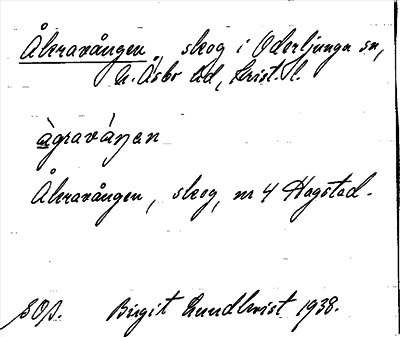 Åkravången, skog i Oderljunga sn,
N. Åsbo hd, Krist. l.
àgraváŋen
Åkravången, skog, nr 4 Hagstad.
SOß. Birgit Lundkvist 1938.